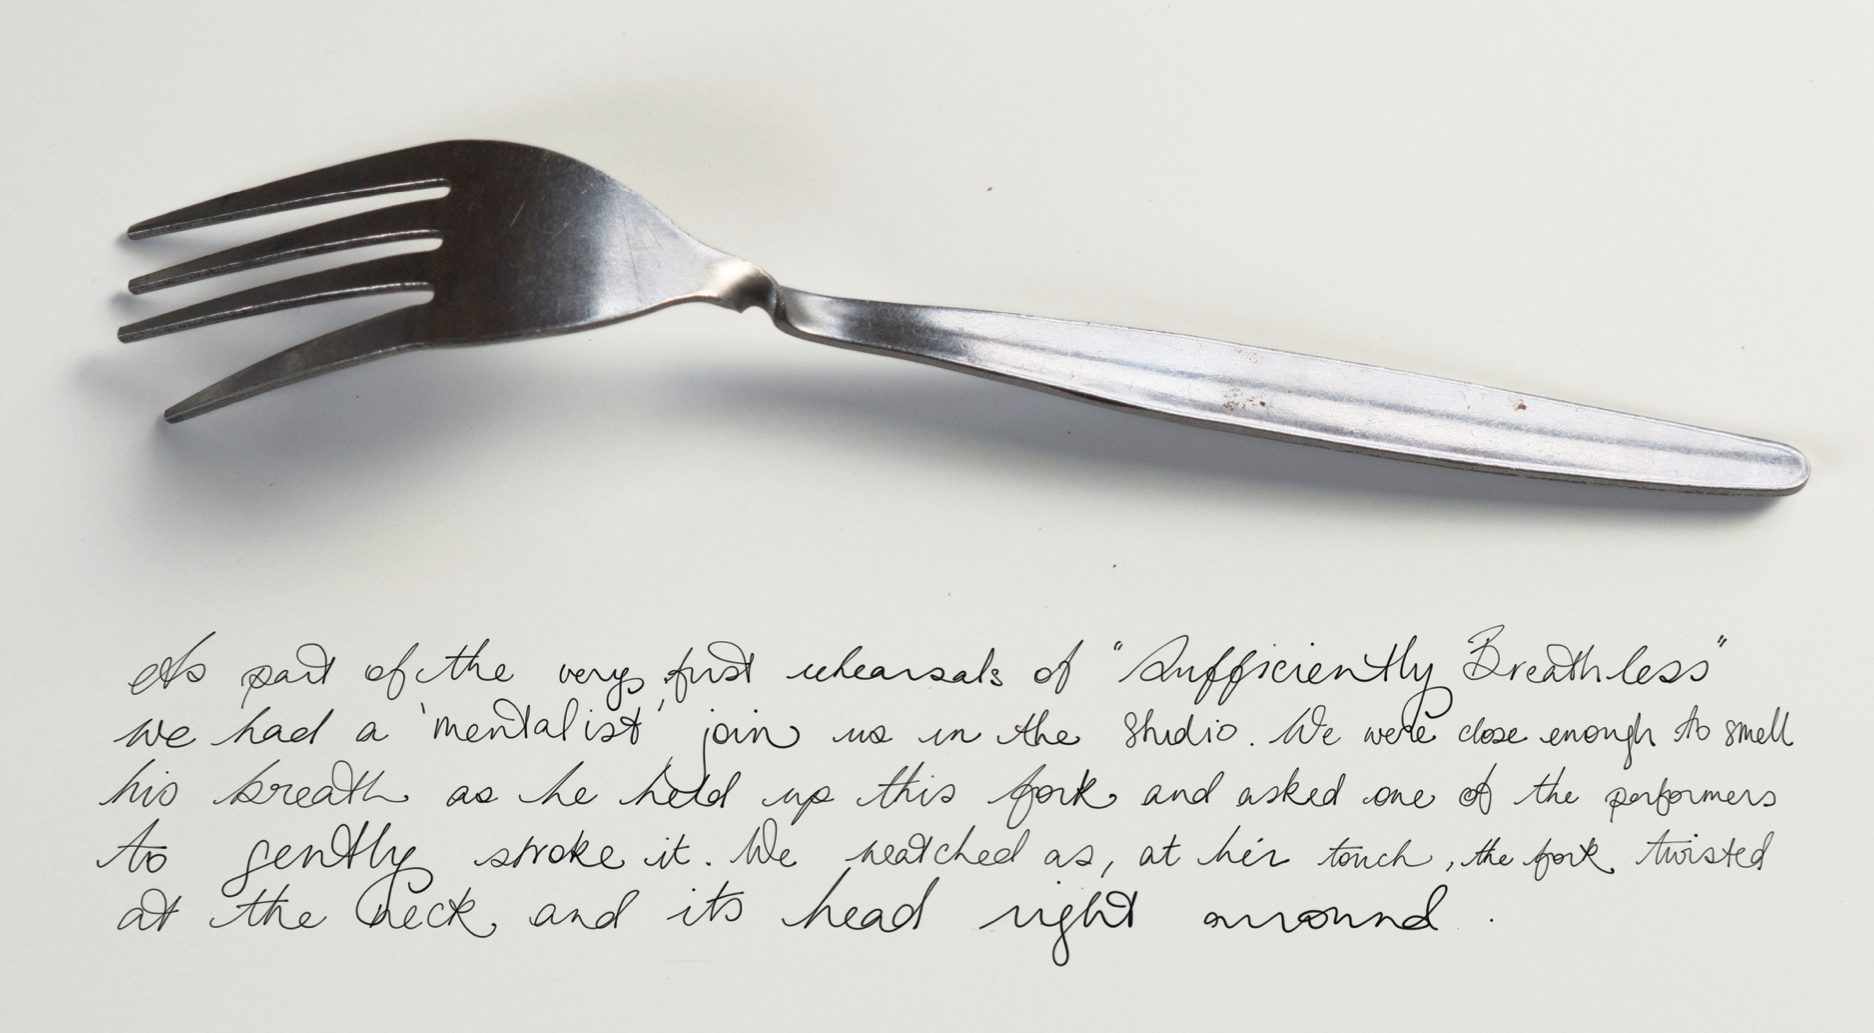 As part of the very first rehearsals of "Sufficiently Breathless"
we had a 'mentalist' join us in the studio. We were close enough to smell
his breath as he held up this fork and asked one of the performers
to gently stroke it. We watched as, at her touch, the fork twisted
at the neck and its head right around.